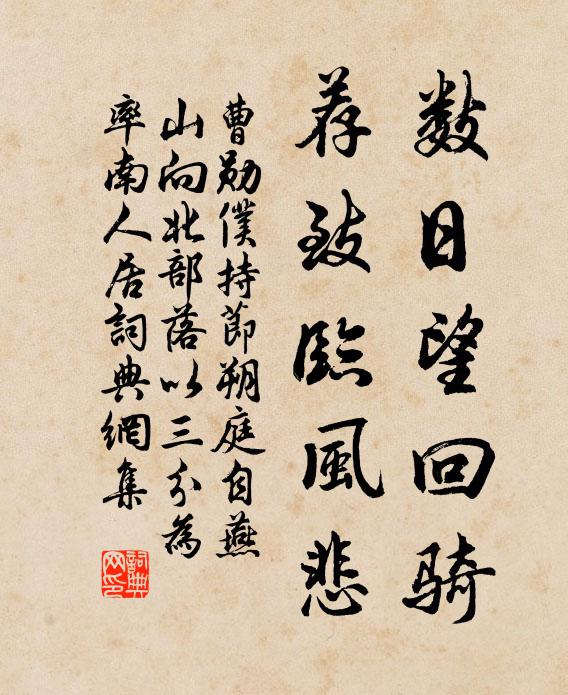 數日望回骑
荐致臨風悲
曹勋僕持節朔庭自燕
山向北部落以三分為
率南人居詞典網集
詞典网印